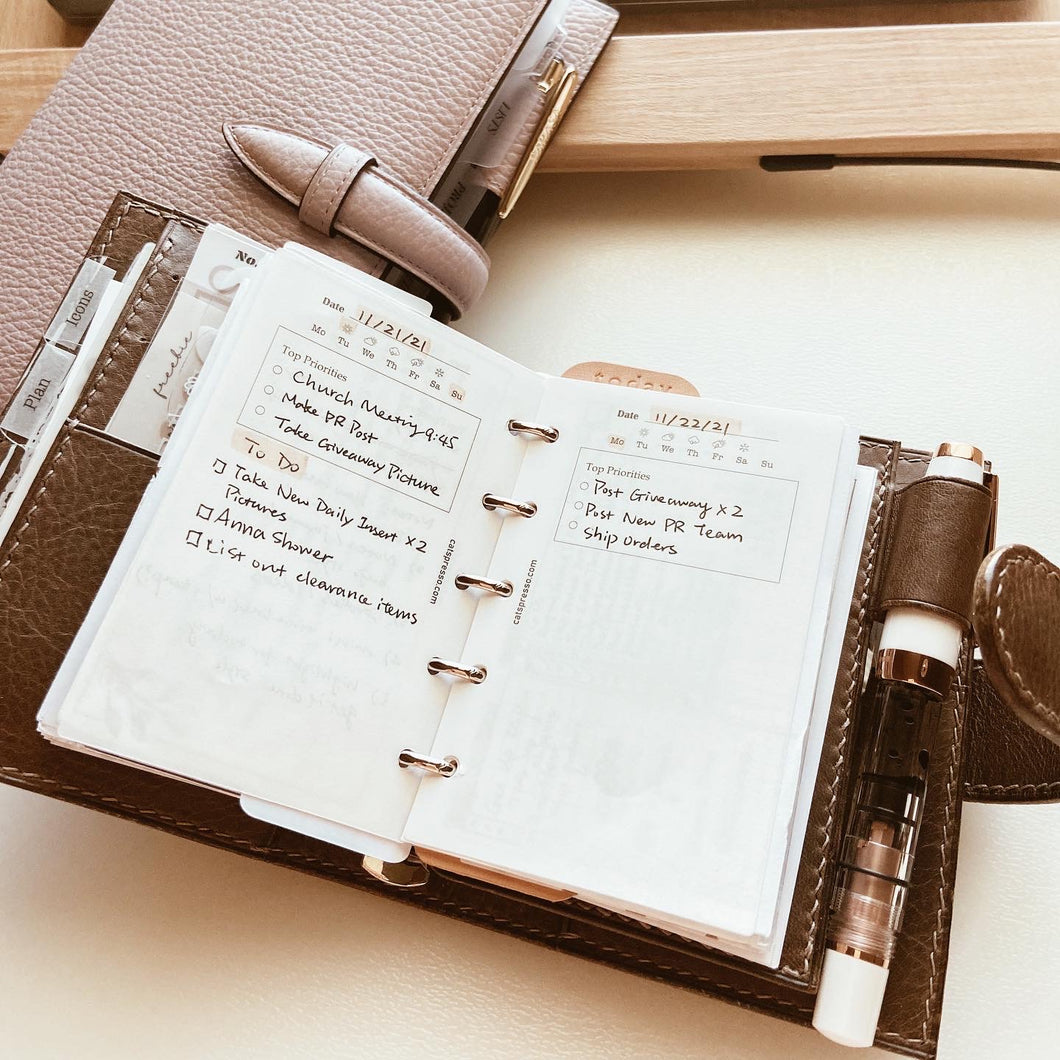 LISTS
No.
Icons
Plan
freebie
Date 11/21/21
Mo Tu We Th Fr Sa Su
Top Priorities
Church Meeting 9:45
Make PR Post
Take Giveaway Picture
To Do
Take New Daily Insert x2
Pictures
Anna Shower
List out clearance items
catspresso.com
today
Date 11/22/21
Mo Tu We Th Fr Sa Su
Top Priorities
Post Giveaway x2
Post New PR Team
Ship orders
catspresso.com